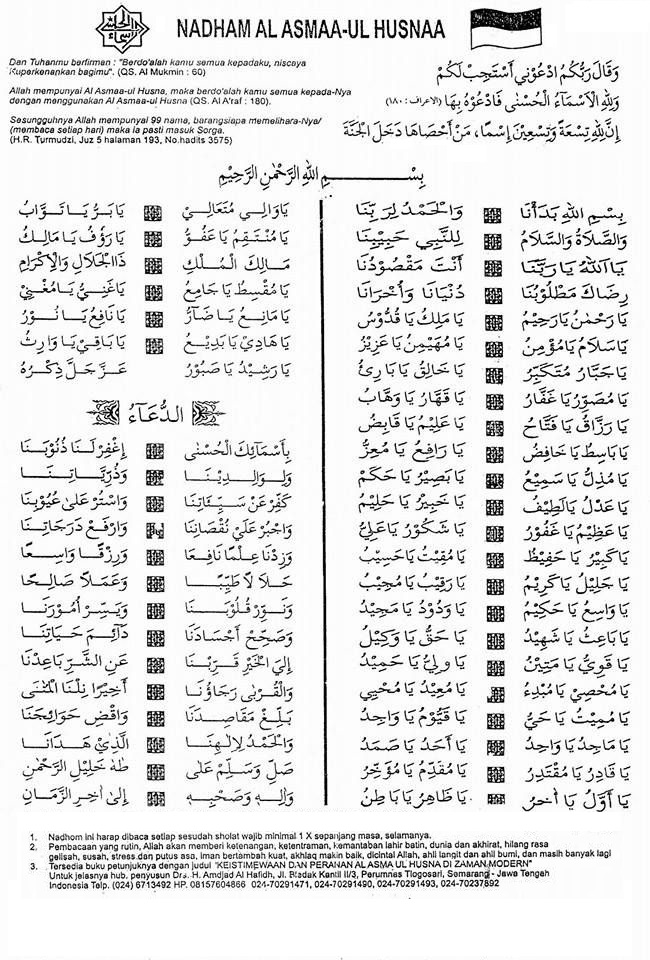 NADHAM AL ASMAA-UL HUSNAA
Dan Tuhanmu berfirman : "Berdo'alah kamu semua kepadaku, niscaya
Kuperkenankan bagimu". (QS. Al Mukmin : 60)
Allah mempunyai Al Asmaa-ul Husna, maka berdo'alah kamu semua kepada-Nya
dengan menggunakan Al Asmaa-ul Husna (QS. Al A'raf : 180).
Sesungguhnya Allah mempunyai 99 nama, barangsiapa memelihara-Nya/
(membaca setiap hari) maka ia pasti masuk Sorga.
(H.R. Turmudzi, Juz 5 halaman 193, No.hadits 3575)
وَقَالَ رَبُّكُمُ ادْعُوْنِي أَسْتَجِبْ لَكُمْ
وَلِلّٰهِ الْأَسْمَآءُ الْحُسْنٰى فَادْعُوْهُ بِهَا (الاعراف : ١٨٠)
إِنَّ لِلّٰهِ تِسْعَةً وَتِسْعِيْنَ إِسْمًا، مَنْ أَحْصَاهَا دَخَلَ الْجَنَّةَ
بِسْمِ اللهِ الرَّحْمٰنِ الرَّحِيْمِ
بِسْمِ اللهِ بَدَأْنَا وَالْحَمْدُ لِرَبِّنَا
وَالصَّلَاةُ وَالسَّلَامُ لِلنَّبِيِّ حَبِيْبِنَا
يَا اَللهُ يَا رَبَّنَا أَنْتَ مَقْصُوْدُنَا
رِضَاكَ مَطْلُوْبُنَا دُنْيَانَا وَأُخْرَانَا
يَا رَحْمٰنُ يَا رَحِيْمُ يَا مَلِكُ يَا قُدُّوْسُ
يَا سَلَامُ يَا مُؤْمِنُ يَا مُهَيْمِنُ يَا عَزِيْزُ
يَا جَبَّارُ مُتَكَبِّرُ يَا خَالِقُ يَا بَارِئُ
يَا مُصَوِّرُ يَا غَفَّارُ يَا قَهَّارُ يَا وَهَّابُ
يَا رَزَّاقُ يَا فَتَّاحُ يَا عَلِيْمُ يَا قَابِضُ
يَا بَاسِطُ يَا خَافِضُ يَا رَافِعُ يَا مُعِزُّ
يَا مُذِلُّ يَا سَمِيْعُ يَا بَصِيْرُ يَا حَكَمُ
يَا عَدْلُ يَا لَطِيْفُ يَا خَبِيْرُ يَا حَلِيْمُ
يَا عَظِيْمُ يَا غَفُوْرُ يَا شَكُوْرُ يَا عَلِيُّ
يَا كَبِيْرُ يَا حَفِيْظُ يَا مُقِيْتُ يَا حَسِيْبُ
يَا جَلِيْلُ يَا كَرِيْمُ يَا رَقِيْبُ يَا مُجِيْبُ
يَا وَاسِعُ يَا حَكِيْمُ يَا وَدُوْدُ يَا مَجِيْدُ
يَا بَاعِثُ يَا شَهِيْدُ يَا حَقُّ يَا وَكِيْلُ
يَا قَوِيُّ يَا مَتِيْنُ يَا وَلِيُّ يَا حَمِيْدُ
يَا مُحْصِيْ يَا مُبْدِءُ يَا مُعِيْدُ يَا مُحْيِي
يَا مُمِيْتُ يَا حَيُّ يَا قَيُّوْمُ يَا وَاجِدُ
يَا مَاجِدُ يَا وَاحِدُ يَا أَحَدُ يَا صَمَدُ
يَا قَادِرُ يَا مُقْتَدِرُ يَا مُقَدِّمُ يَا مُؤَخِّرُ
يَا أَوَّلُ يَا آخِرُ يَا ظَاهِرُ يَا بَاطِنُ
يَا وَالِي مُتَعَالِيْ يَا بَرُّ يَا تَوَّابُ
يَا مُنْتَقِمُ يَا عَفُوُّ يَا رَؤُفُ يَا مَالِكُ
مَالِكَ الْمُلْكِ ذَا الْجَلَالِ وَالْإِكْرَامِ
يَا مُقْسِطُ يَا جَامِعُ يَا غَنِيُّ يَا مُغْنِيْ
يَا مَانِعُ يَا ضَآرُّ يَا نَافِعُ يَا نُوْرُ
يَا هَادِيْ يَا بَدِيْعُ يَا بَاقِيْ يَا وَارِثُ
يَا رَشِيْدُ يَا صَبُوْرُ عَزَّ جَلَّ ذِكْرُهُ
الدُّعَآءُ
بِأَسْمَائِكَ الْحُسْنٰى إِغْفِرْ لَنَا ذُنُوْبَنَا
وَلِوَالِدِيْنَا وَذُرِّيَّاتِنَا
كَفِّرْ عَنْ سَيِّئَاتِنَا وَاسْتُرْ عَلٰى عُيُوْبِنَا
وَاجْبُرْ عَلٰى نُقْصَانِنَا وَارْفَعْ دَرَجَاتِنَا
وَزِدْنَا عِلْمًا نَافِعًا وَرِزْقًا وَاسِعًا
حَلَالًا طَيِّبًا وَعَمَلًا صَالِحًا
وَنَوِّرْ قُلُوْبَنَا وَيَسِّرْ أُمُوْرَنَا
وَصَحِّحْ أَجْسَادَنَا دَآئِمَ حَيَاتِنَا
إِلَى الْخَيْرِ قَرِّبْنَا عَنِ الشَّرِّ بَاعِدْنَا
وَالْقُرْبٰى رَجَاؤُنَا أَخِيْرًا نِلْنَا الْمُنٰى
بَلِّغْ مَقَاصِدَنَا وَاقْضِ حَوَائِجَنَا
وَالْحَمْدُ لِإِلٰهِنَا الَّذِيْ هَدَانَا
صَلِّ وَسَلِّمْ عَلٰى طٰهٰ خَلِيْلِ الرَّحْمٰنِ
وَآلِهِ وَصَحْبِهِ إِلٰى آخِرِ الزَّمَانِ
1. Nadhom ini harap dibaca setiap sesudah sholat wajib minimal 1 X sepanjang masa, selamanya.
2. Pembacaan yang rutin, Allah akan memberi ketenangan, ketentraman, kemantaban lahir batin, dunia dan akhirat, hilang rasa
gelisah, susah, stress dan putus asa, iman bertambah kuat, akhlaq makin baik, dicintai Allah, ahli langit dan ahli bumi, dan masih banyak lagi
3. Tersedia buku petunjuknya dengan judul "KEISTIMEWAAN DAN PERANAN AL ASMA UL HUSNA DI ZAMAN MODERN"
Untuk jelasnya hub. penyusun Drs. H. Amdjad Al Hafidh, Jl. Bledak Kantil II/3, Perumnas Tlogosari, Semarang - Jawa Tengah
Indonesia Telp. (024) 6713492 HP. 08157604866 024-70291471, 024-70291490, 024-70291493, 024-70237892